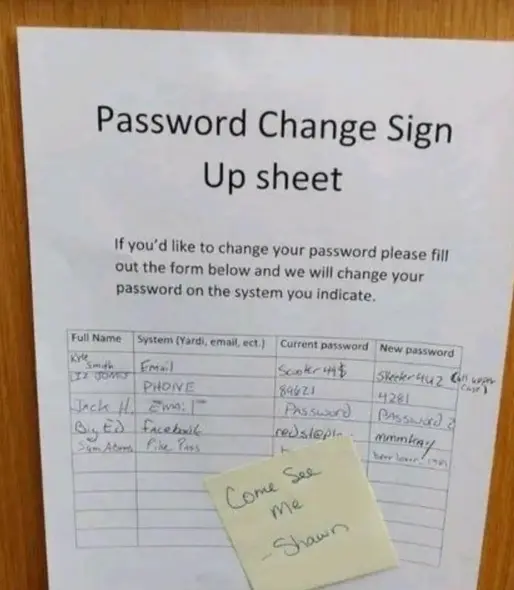 Password Change Sign
Up sheet
If you'd like to change your password please fill
out the form below and we will change your
password on the system you indicate.
Full Name System (Yardi, email, ect.) Current password New password
Kyle
Smith Email Scooter 44$ Skeeter 442 (all upper
case)
Liz Jones PHONE 89621 4281
Jack H. Email Password Password 2
Big Ed facebook
Sam Adams Pike Pass
Come See
Me
- Shawn